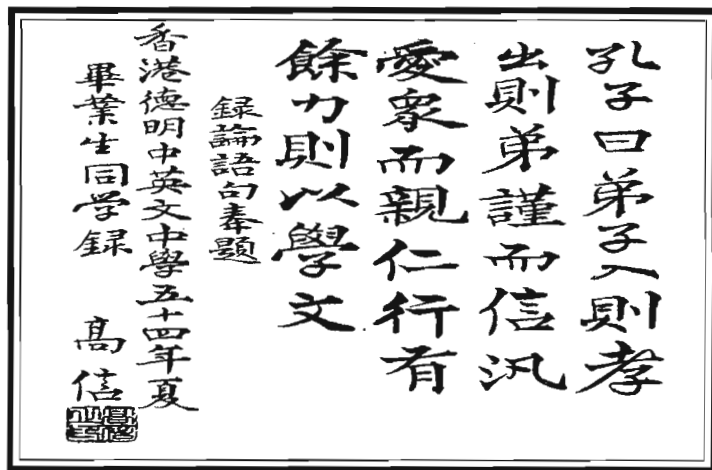 孔子曰弟子入則孝
出則弟謹而信汎
愛眾而親仁行有
餘力則以學文
録論語句奉題
香港德明中英文中學五十四年夏
畢業生同学録
高信